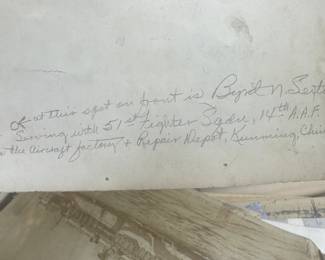 at this spot on front is Byrd N.
Serving with 51st Fighter Sqdn, 14th A.A.F.
the Aircraft factory & Repair Depot, Kunming, Chi